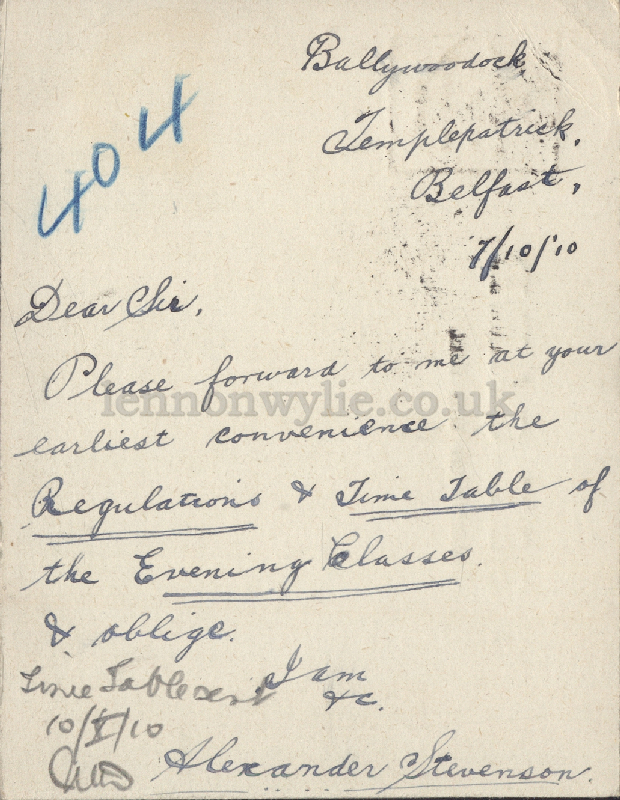 404
Ballywoodock
Templepatrick,
Belfast,
7/10/'10
Dear Sir,
Please forward to me at your
lennonwylie.co.uk
earliest convenience the
Regulations & Time Table of
the Evening Classes.
& oblige.
I am
&c.
Time Table sent
10/X/10
Alexander Stevenson.